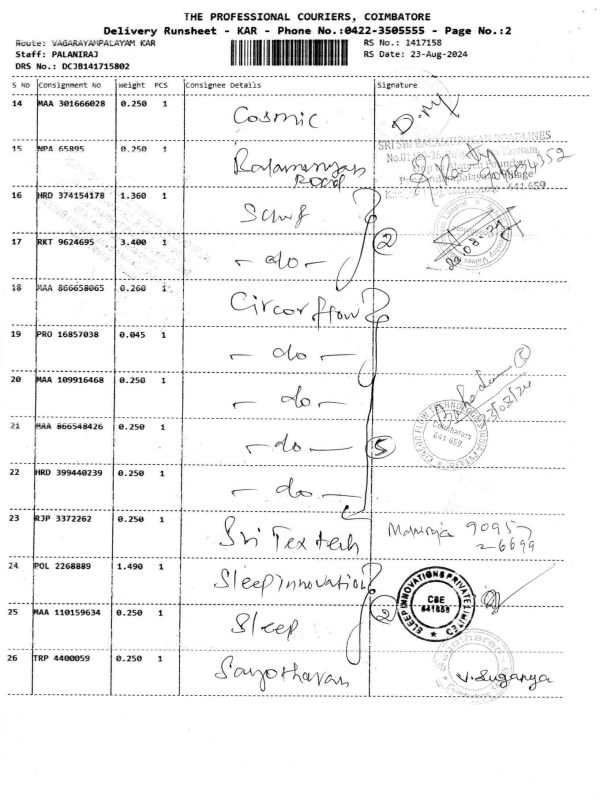 THE PROFESSIONAL COURIERS, COIMBATORE
Delivery Runsheet - KAR - Phone No.:0422-3505555 - Page No.:2
Route: VAGARAYAMPALAYAM KAR
RS No.: 1417158
Staff: PALANIRAJ
RS Date: 23-Aug-2024
DRS No.: DCJB141715802
S No Consignment No Weight PCS Consignee Details Signature
14 MAA 301666028 0.250 1 Cosmic
15 NPA 65895 0.250 1
SRI SRI ROADLINES
Road
641 659
16 HRD 374154178 1.360 1
17 RKT 9624695 3.400 1 - do - 2
18 MAA 866658065 0.260 1 Circorflow
19 PRO 16857038 0.045 1 - do -
20 MAA 109916468 0.250 1 - do -
21 MAA 866548426 0.250 1 - do - 5
Coimbatore
641 659
22 HRD 399440239 0.250 1 - do -
23 RJP 3372262 0.250 1 Sri Textech 90957
2-6699
24 POL 2268889 1.490 1 Sleep Innovation
SLEEP INNOVATIONS PRIVATE LIMITED
CBE
641659
25 MAA 110159634 0.250 1 Sleep 2
26 TRP 4400059 0.250 1 V. Suganya